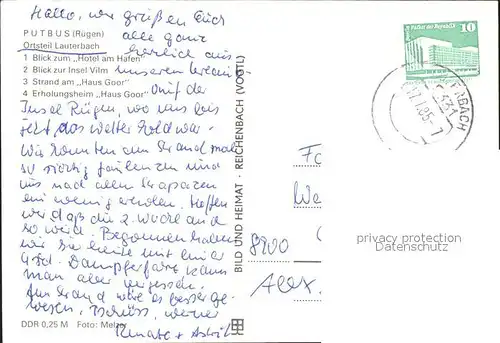 Hallo, wir grüßen Euch
PUTBUS (Rügen)
alle ganz
Ortsteil Lauterbach
herzlich aus
1 Blick zum „Hotel am Hafen"
2 Blick zur Insel Vilm
unserem Urlaub
3 Strand am „Haus Goor"
4 Erholungsheim „Haus Goor"
auf der
Insel Rügen, wo uns bis
jetzt das Wetter hold war.
Wir konnten am Strand mal
so richtig faulenzen und
uns nach allen Strapazen
ein wenig erholen. Hoffen
wir daß die 2. Woche auch
so wird. Begonnen haben
wir sie heute mit einer
Dampferfahrt kann
man aber vergessen.
Am Strand wäre es besser ge-
wesen. Tschüss, 
Renate + Astrid
DDR 0,25 M Foto: Melzer
BILD UND HEIMAT · REICHENBACH (VOGTL)
Palast der Republik
10
DDR
17.7.85-7
8900
Alex.
privacy protection
Datenschutz